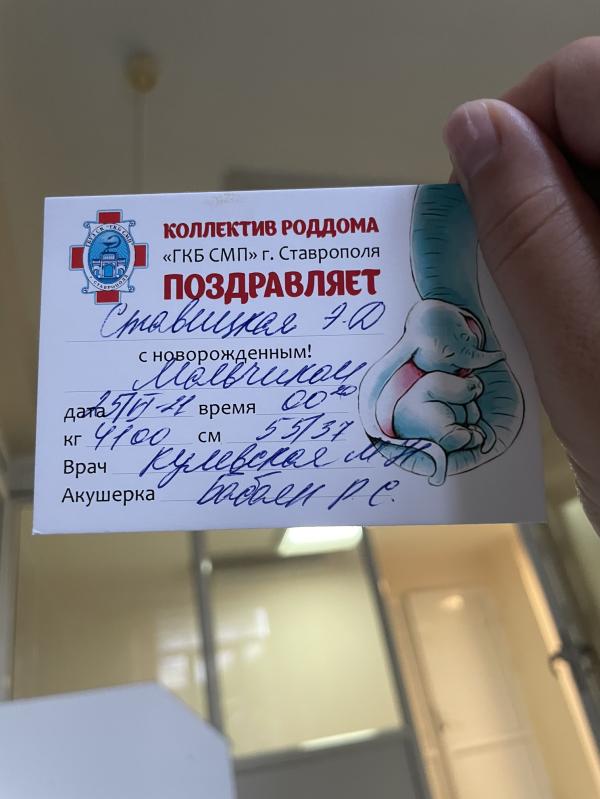 КОЛЛЕКТИВ РОДДОМА
«ГКБ СМП» г. Ставрополя
ПОЗДРАВЛЯЕТ
Ставицкая Э.Д
с новорожденным!
Мальчиком
дата 25/VI-21 время 00²⁰
кг 4100 см 55/37
Врач Кулевская М
Акушерка Бабаян Р.С.